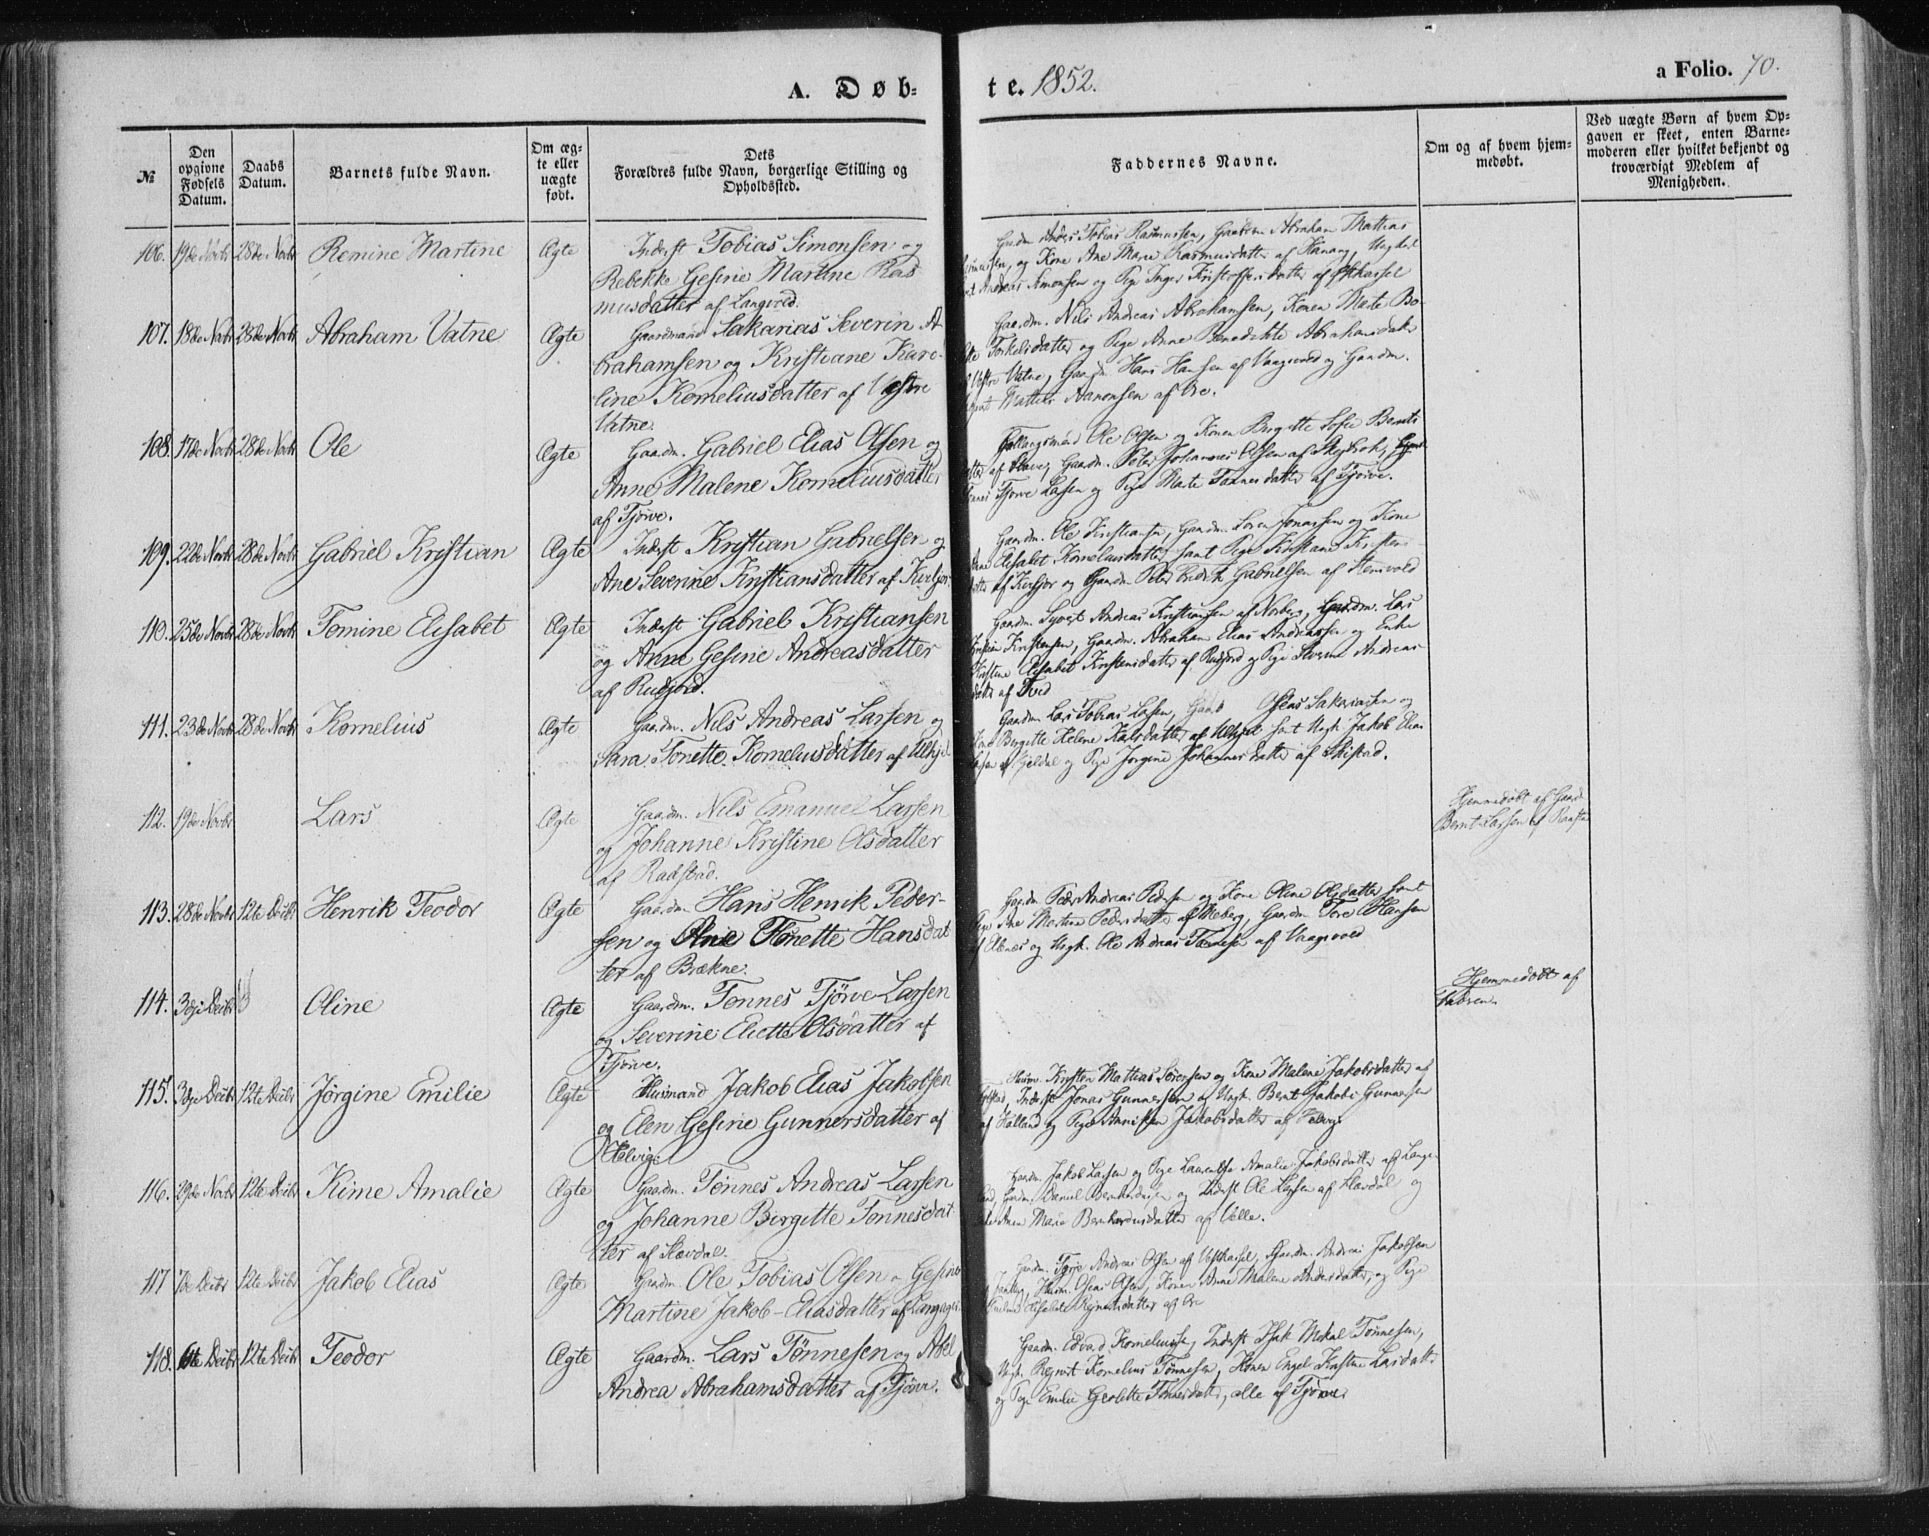 A. Døb-
te. 1852.
a Folio. 70.
№
Den
opgivne
Fødsels
Datum.
Daabs
Datum.
Barnets fulde Navn.
Om æg-
te eller
uægte
født.
Dets
Forældres fulde Navn, borgerlige Stilling og
Opholdssted.
Faddernes Navne.
Om og af hvem hjem-
medøbt.
Ved uægte Børn af hvem Op-
gaven er skeet, enten Barne-
moderen eller hvilket bekjendt og
troværdigt Medlem af
Menigheden.
106. 19de Novbr 28de Novbr Remine Martine Ægte Inderst Tobias Simonsen og
Rebekke Gesine Martine Ras
musdatter af Langvold.
Tobias Rasmussen, Abraham Mathias
og Kone Ane Marie Rasmusdatter af Hanang, Ungkl
Andreas Simonsen og Pige Inger Kristoffersdatter af
107. 18de Novbr 28de Novbr Abraham Vatne Ægte Gaardmand Sakarias Severin A-
brahamsen og Kristiane Karo-
line Korneliusdatter af Vestre
Vatne.
Gaardm. Nils Andreas Abrahamsen, Konen Marte Bo-
Torkelsdatter og Pige Anne Benedikte Abrahamsdatter
Vestre Vatne, Gaardm Hans Hansen af Vaagsvold og Gaardm.
Mattias Aanonsen af Ore.
108. 17de Novbr 28de Novbr Ole Ægte Gaardm. Gabriel Elias Olsen og
Anne Malene Korneliusdatter
af Tjørve.
Ole Olsen og Konen Birgitte Sofie Bernts
datter af Gaardm. Peter Johannes Olsen af
Tjørve Larsen og Pige Marte Tønnesdatter af Tjørve.
109. 22de Novbr 28de Novbr Gabriel Kristian Ægte Inderst Kristian Gabrielsen og
Ane Severine Kristiansdatter af Kviljo.
Gaardm. Ole Kristiansen, Gaardm. Søren Jonassen og Kone
Elisabet Korneliusdatter samt Pige Kristiane Kristens
datter af Kviljo og Gaardm Peder Fredrik Gabrielsen af Stensvold
110. 25de Novbr 28de Novbr Tomine Elisabet Ægte Inderst Gabriel Kristiansen
og Anne Gesine Andreasdatter
af Rudjord.
Gaardm Syvert Andreas Kristiansen af Norberg, Gaardm. Lars
Kristian Kristensen, Gaardm. Abraham Elias Andreassen og Enke
Kristine Elisabet Kristensdatter af Rudjord og Pige Andreas
datter af Tved
111. 23de Novbr 28de Novbr Kornelius Ægte Gaardm. Nils Andreas Larsen og
Sara Tonette Korneliusdatter af Ulhjel
Gaardm Lars Tobias Larsen, Oseas Sakariassen og
Birgitte Helene Nilsdatter af Ulhjel samt Ungk Jakob Elias
Larsen af og Pige Jørgine Johannesdatter af
112. 19de Novbr Lars Ægte Gaardm. Nils Emanuel Larsen
og Johanne Kristine Olsdatter
af Radstad.
Hjemmedøbt af Gaard.
Bernt Larsen af
113. 28de Novbr 12te Decbr Henrik Teodor Ægte Gaardm Hans Henrik Peder-
sen og Ane Tonette Hansdat
ter af Brækne.
Gaardm Peder Andreas Pedersen og Kone Oline Olsdatter samt
Pige Ane Martine Pedersdatter af Gaardm Tore Hansen
af og Ungk. Ole Andreas Tønnesen af Vaagsvold
114. 3die Decbr Oline Ægte Gaardm. Tønnes Tjørve Larsen
og Severine Eliette Olsdatter af
Tjørve.
Hjemmedøbt af
Faderen.
115. 3die Decbr 12te Decbr Jørgine Emilie Ægte Husmand Jakob Elias Jakobsen
og Elen Gesine Gunnersdatter af
Helvig.
Husm. Kristen Mattias Sørensen og Kone Malene Jakobsdatter af
Inderst Jonas Gunnersen og Ungk. Bernt Jakob Gunnersen
af Holland og Pige Jakobsdatter af Helvig
116. 29de Novbr 12te Decbr Kime Amalie Ægte Gaardm. Tønnes Andreas Larsen
og Johanne Birgitte Tønnesdat
ter af Støvdal.
Gaardm Jakob Larsen og Pige Amalie Jakobsdatter af Lange
land, Gaardm. Daniel og Inderst Ole Larsen af og
Anne Marie Bernhardusdatter af
117 7de Decbr 12te Decbr Jakob Elias Ægte Gaardm Ole Tobias Olsen og Gesine
Martine Jakob-Eliasdatter af Langager
Gaardm. Andreas Olsen af Vesthassel, Gaardm. Andreas Jakobsen
Husm. Oseas Olsen, Konen Anne Malene Andersdatter, og Pige
Elisabet af Ore
118. 6te Decbr 12te Decbr Teodor Ægte Gaardm. Lars Tønnesen og Abel
Andrea Abrahamsdatter af Tjørve.
Gaardm. Edvard Korneliussen, Inderst Isak Mikal Tønnesen,
Ungk. Bernt Kornelius Tønnesen, Konen Engel Kristine Larsdatter
og Pige Emilie Tønnesdatter, alle af Tjørve